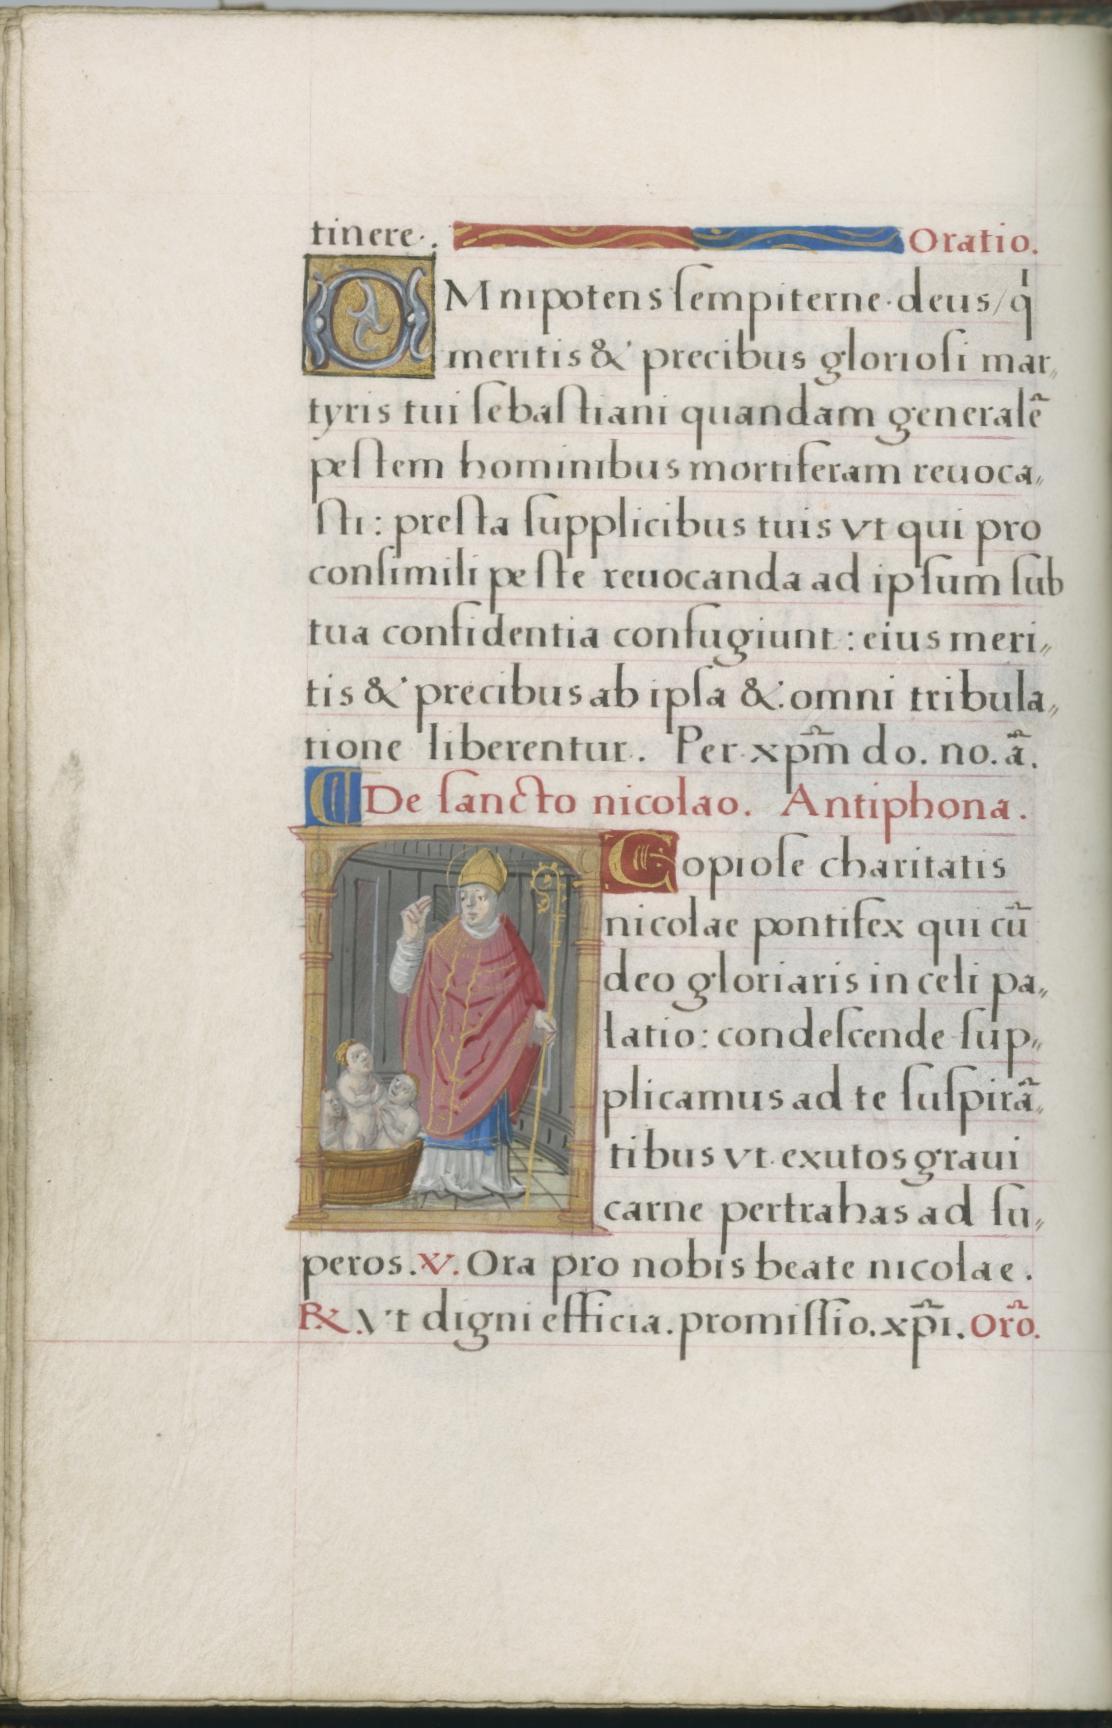 tinere. Oratio.
OMnipotens ſempiterne deus/ q̍
meritis &̕ precibus glorioſi mar„
tyris tui ſebaſtiani quandam generalẽ
peſtem hominibus mortiferam reuoca„
ſti: preſta ſupplicibus tuis vt qui pro
conſimili peſte reuocanda ad ipſum ſub
tua confidentia confugiunt: eius meri„
tis &̕ precibus ab ipſa &. omni tribula„
tione liberentur. Per xp̃m do. no. ã.
De ſancto nicolao. Antiphona.
Copioſe charitatis
nicolae pontifex qui cũ
deo gloriaris in celi pa„
latio: condeſcende ſup„
plicamus ad te ſuſpirã„
tibus vt exutos graui
carne pertrahas ad ſu„
peros. v. Ora pro nobis beate nicolae.
℞. Vt digni efficia. promiſſio. xp̃i. Orõ.